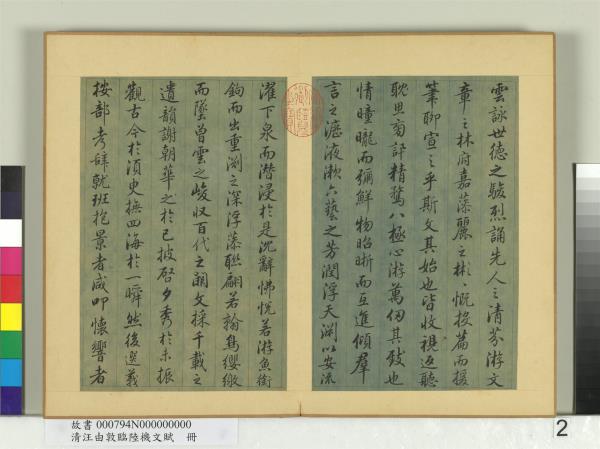 雲詠世德之駿烈誦先人之清芬游文
章之林府嘉藻麗之彬〻慨投篇而援
筆聊宣之乎斯文其始也皆收視返聽
耽思旁訊精騖八極心游萬仞其致也
情曈曨而彌鮮物昭晰而互進傾羣
言之瀝液漱六藝之芳潤浮天淵以安流
濯下泉而潛浸於是沉辭怫悅若游魚銜
鉤而出重淵之深浮藻聯翩若翰鳥纓繳
而墜曾雲之峻収百代之闕文採千載之
遺韻謝朝華之於已披啓夕秀於未振
觀古今於須臾撫四海於一瞬然後選義
按部考辭就班抱景者咸叩懷響者
故書 000794N000000000
清汪由敦臨陸機文賦 冊
2